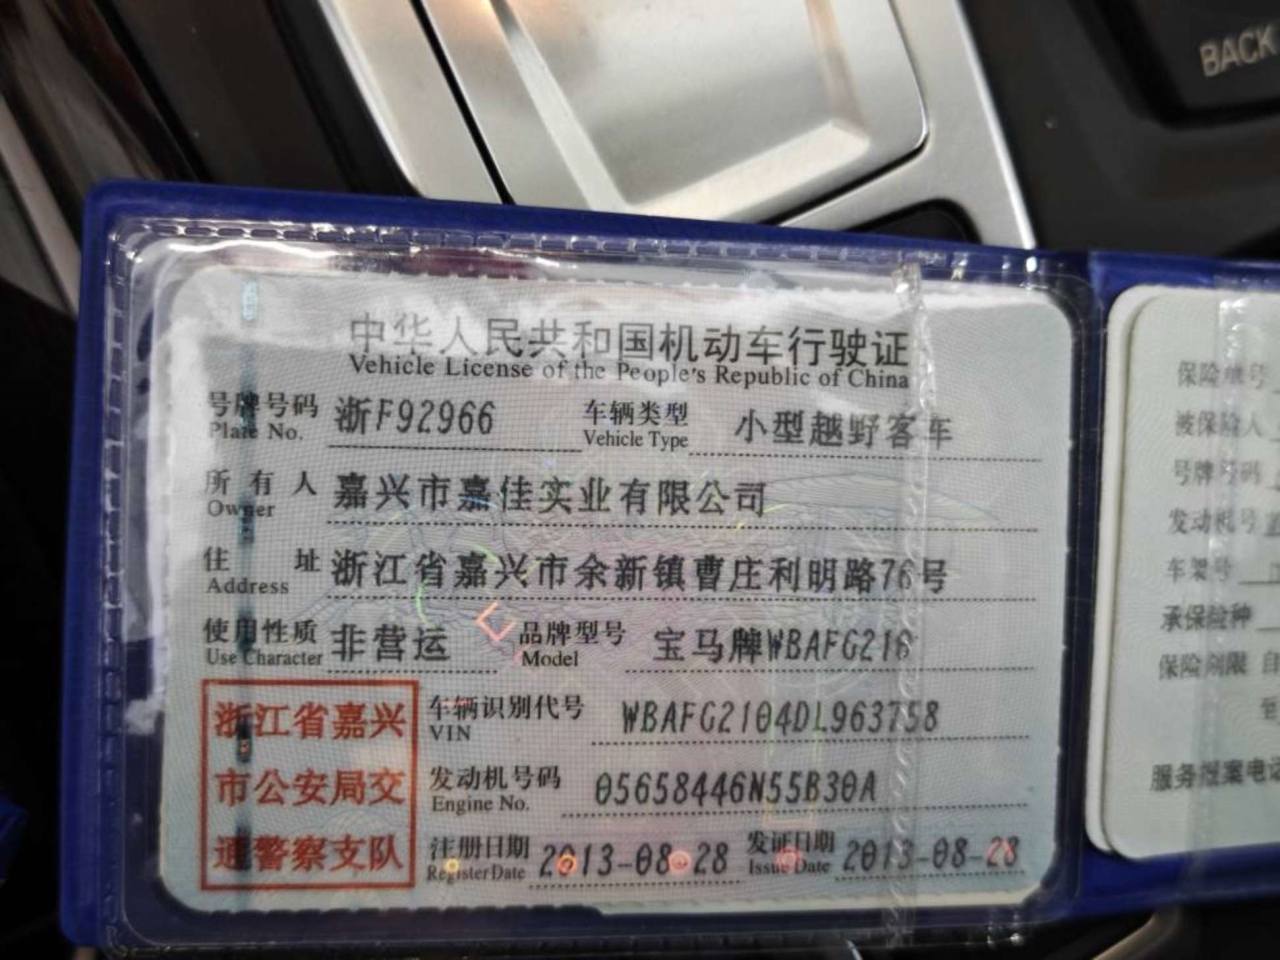 BACK
中华人民共和国机动车行驶证
Vehicle License of the People's Republic of China
号牌号码 浙F92966 车辆类型 小型越野客车
Plate No. Vehicle Type
所有人 嘉兴市嘉佳实业有限公司
Owner
住址 浙江省嘉兴市余新镇曹庄利明路76号
Address
使用性质 非营运 品牌型号 宝马牌WBAFG216
Use Character Model
浙江省嘉兴
市公安局交
通警察支队
车辆识别代号 WBAFG2104DL963758
VIN
发动机号码 05658446N55B30A
Engine No.
注册日期 2013-08-28 发证日期 2013-08-28
Register Date Issue Date
保险单号
被保险人
号牌号码
发动机号
车架号
承保险种
保险期限 自
至
服务报案电话